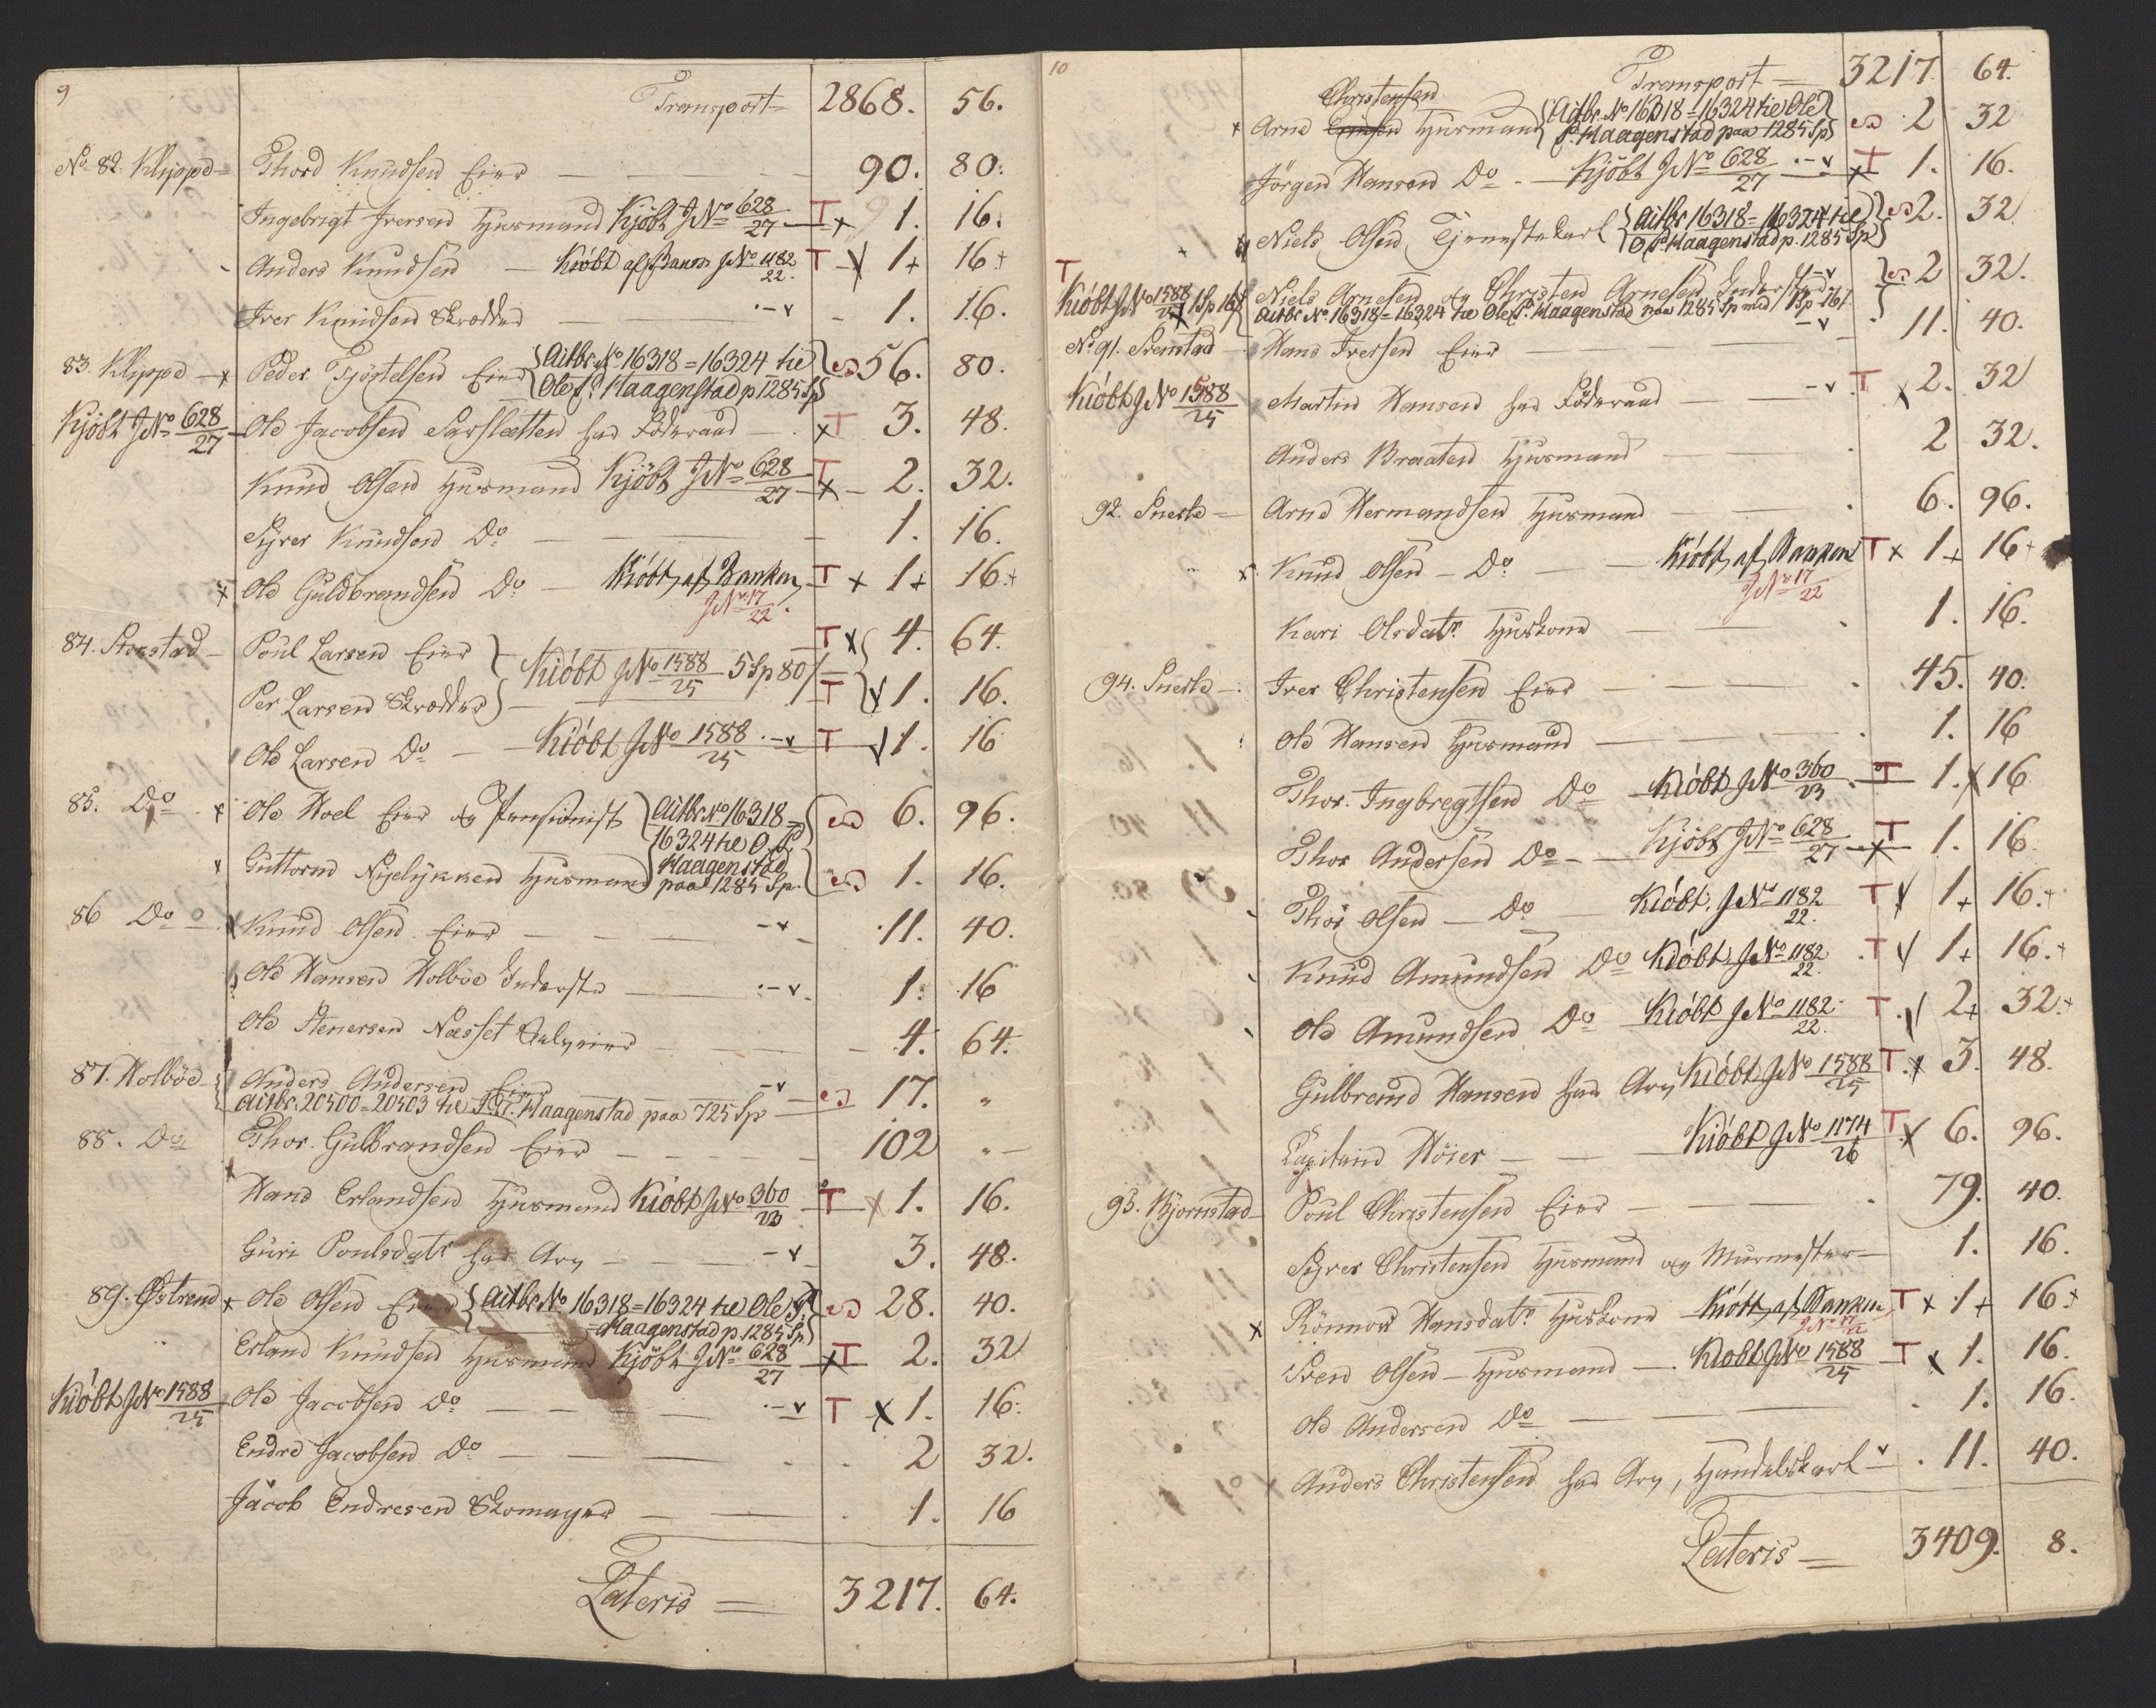 9
Transport = 2868. 56.
No 82. Klyppe = Thord Knudsen Eier 90. 80.
Ingebrigt Iversen Huusmand Kjöbt JNo 628/27 T x 1. 16.
Anders Knudsen Kiöbt af Banen JNo 1182/22. T 1+ 16+
Iver Knudsen Skrædder 1. 16.
83. Klyppe x Peder Tjöstelsen Eier {Aitbr. No 16318=16324 til Ole P. Haagenstad p 1285 Sp} 56. 80.
Kjöbt JNo 628/27 Ole Jacobsen Sarsletten har Föderaad x T 3. 48.
Knud Olsen Huusmand Kjöbt JNo 628/27 T x 2. 32.
Syver Knudsen Do 1. 16.
x Ole Guldbrandsen Do Kiöbt af Banken JNo 17/22. T x 1+ 16+
84. Storstad Poul Larsen Eier } T x 4. 64.
Kiöbt JNo 1588/25 5 Sp 80
Per Larsen Skrædder } T 1. 16.
Ole Larsen Do Kiöbt JNo 1588/25 T 1. 16
85. Do x Ole Hoel Eier og Pensionist {Aitbr No 16318= 6. 96.
16324 til O. P.
Guttorm Nyelykken Huusmand Haagenstad paa 1285 Sp. 1. 16.
86 Do Knud Olsen Eier 11. 40.
Ole Hansen Holböe Inderste 1. 16
Ole Stenersen Næsset Selveier 4. 64.
87. Holböe Anders Andersen Eier 17. "
Aitbr. 20500=20503 til Haagenstad paa 725 Sp
88. Do Thor Gulbrandsen Eier 102 "
Hans Erlandsen Huusmand Kiöbt JNo 360/23 T x 1. 16.
Guri Poulsdatr har Arv 3. 48.
89. Östrem x Ole Olsen Eier {Aitbr No 16318=16324 til Ole P. Haagenstad p. 1285 Sp.} 28. 40.
Erland Knudsen Huusmand Kjöbt JNo 628/27 x T 2. 32
Kiöbt JNo 1588/25 Ole Jacobsen Do T x 1. 16.
Endre Jacobsen Do 2 32.
Jacob Endresen Skomager 1. 16
Lateris = 3217. 64.
10
Transport = 3217. 64.
Christensen
x Arne Huusmand {Aitbr. No 16318=16324 til Ole P. Haagenstad paa 1285 Sp} 2 32
Jörgen Hansen Do Kjöbt JNo 628/27 x T 1. 16.
Niels Olsen Tjenestekarl {Aitbr 16318=16324 til O P. Haagenstad p. 1285 Sp} 2. 32
T
Kiöbt JNo 1588/25 1 Sp 16 Niels Arnesen og Christen Arnesen Inderster 2 32.
Aitbr No 16318=16324 til Ole P. Haagenstad paa 1285 Sp med 1 Sp 16
No 91. Svenstad Hans Iversen Eier 11. 40.
Kiöbt JNo 1588/25 Martin Hansen har Föderaad T x 2. 32
Anders Braaten Huusmand 2 32.
92. Snerle Arne Hermandsen Huusmand 6. 96.
x Knud Olsen Do Kiöbt af Banken JNo 17/22 T x 1+ 16+
Kari Olsdatr Huuskone 1. 16.
94. Snerle Iver Christensen Eier 45. 40.
Ole Hansen Huusmand 1. 16
Thor Ingbregtsen Do Kiöbt JNo 360/23 T 1. x 16
Thor Andersen Do Kjöbt JNo 628/27 T x 1. 16.
Thor Olsen Do Kiöbt. JNo 1182/22. T 1+ 16.+
Knud Amundsen Do Kiöbt. JNo 1182/22. T 1+ 16.+
Ole Amundsen Do Kiöbt JNo 1182/22. T 2+ 32.+
Gulbrand Hansen har Arv Kiöbt JNo 1588/25 T x 3. 48.
Capitain Höier Kiöbt JNo 1174/26 T x 6. 96.
95. Bjornstad Poul Christensen Eier 79. 40.
Syver Christensen Huusmand og Murmester 1. 16.
x Rönnou Hansdatr Huuskone Kiöbt af Banken JNo 17/22 T x 1+ 16.+
Sven Olsen Huusmand Kiobt JNo 1588/25 T x 1. 16.
Ole Andersen Do 1. 16.
Anders Christensen har Arv, Handelskarl 11. 40.
Lateris = 3409. 8.